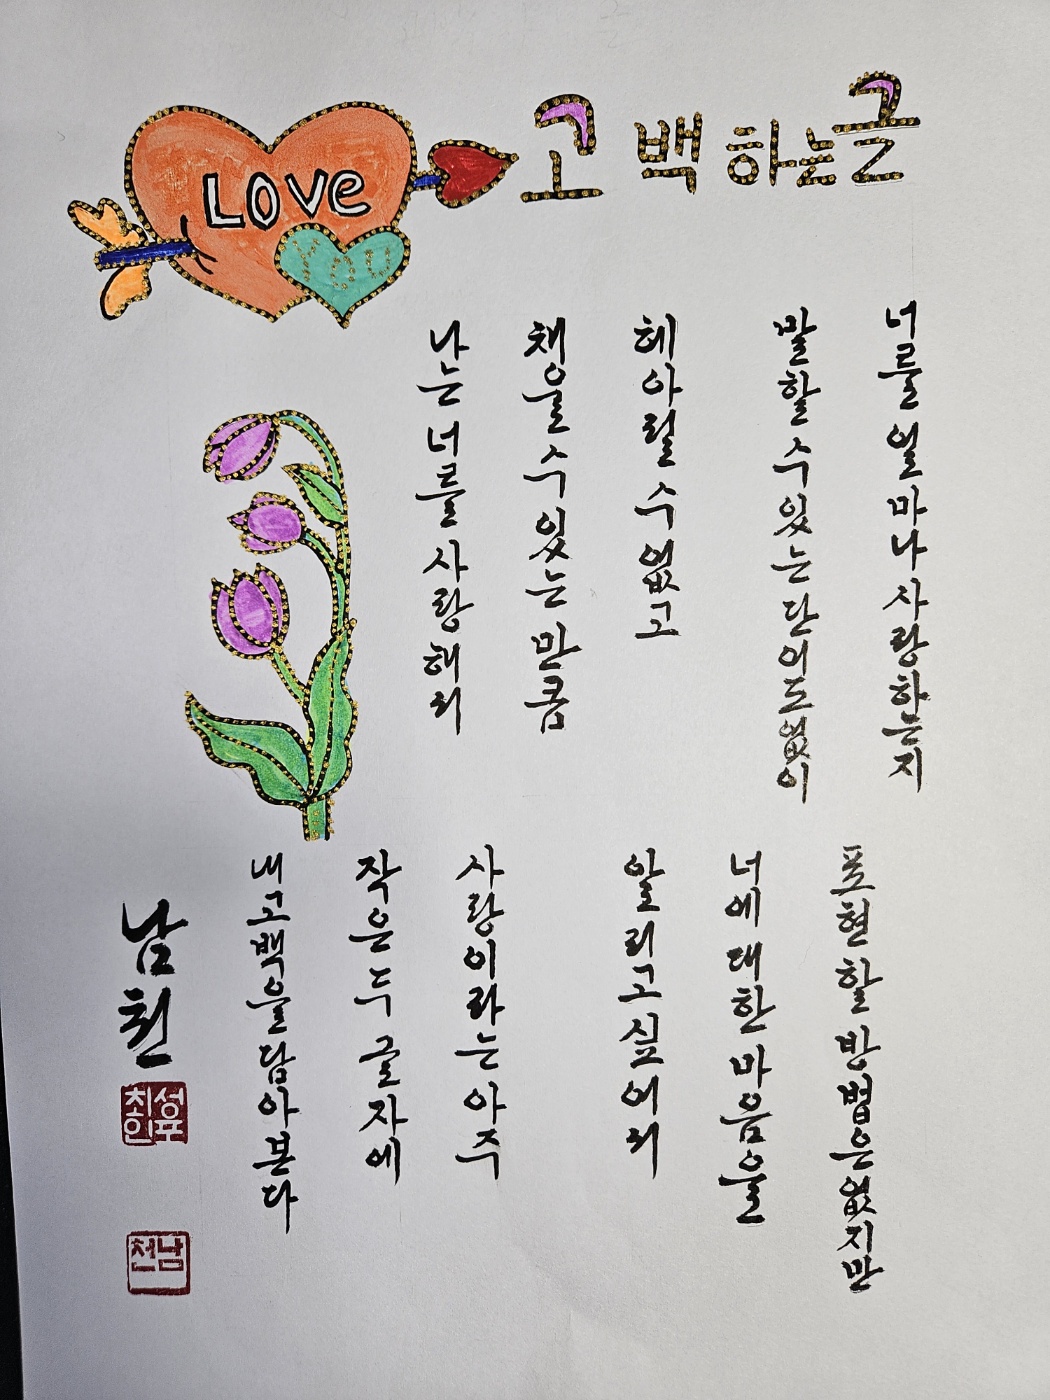 LOVE
You
고백하는글
너를 얼마나 사랑하는지
말할 수 있는 단어도 없이
헤아릴 수 없고
채울 수 있는 만큼
나는 너를 사랑해서
표현할 방법은 없지만
너에 대한 마음을
알리고 싶어서
사랑이라는 아주
작은 두 글자에
내 고백을 담아본다
남천
남천